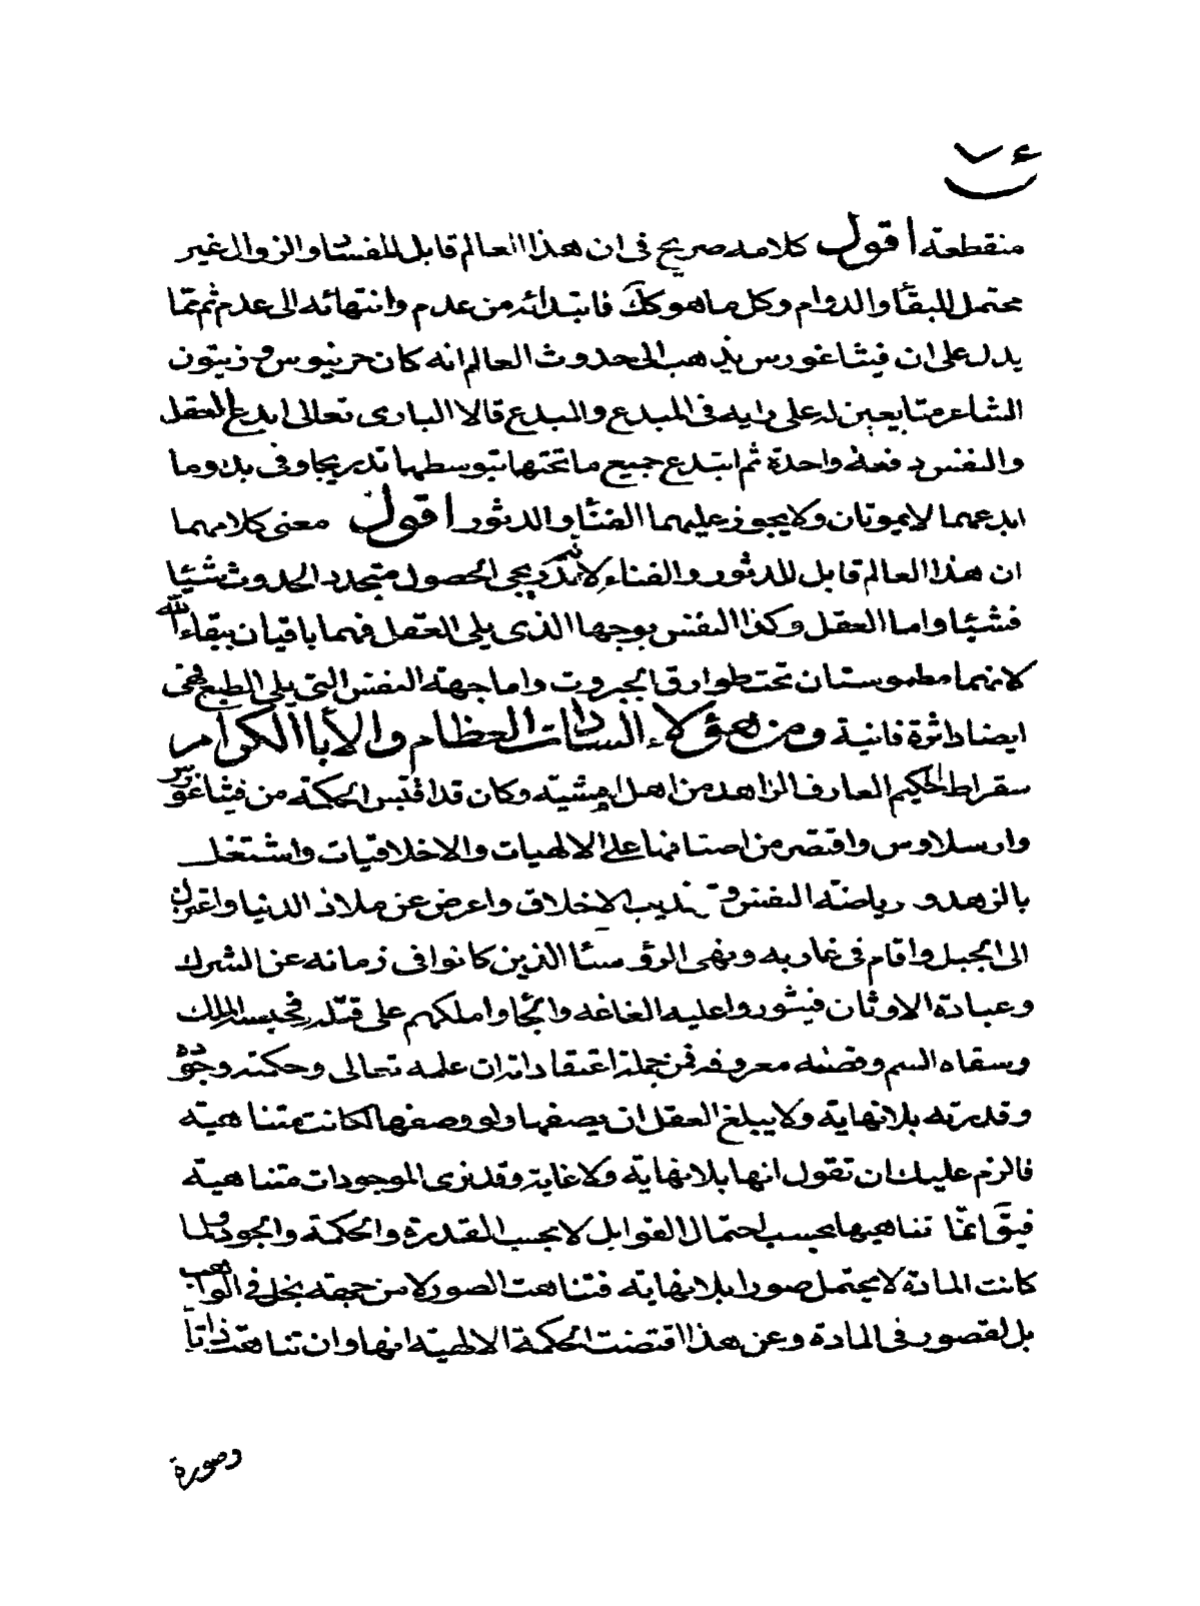 ٧٤
منقطعة اقول كلامه صريح فى ان هذا العالم قابل للفساد والزوال غير
محتمل للبقاء والدوام وكل ما هو كك فابتدائه من عدم وانتهائه الى عدم ثم مما
يدل على ان فيثاغورس يذهب الى حدوث العالم انه كان خرينوس و زينون
الشاعر متابعين له على رايه فى المبدع والمبدع قالا البارى تعالى ابدع العقل
والنفس دفعة واحدة ثم ابتدع جميع ما تحتها بتوسطهما تدريجا وفى بدو ما
ابدعهما لا يموتان ولا يجوز عليهما الفناء والدثور اقول معنى كلامهما
ان هذا العالم قابل للدثور والفناء لانه تدريجى الحصول متجدد الحدوث شيئا
فشيئا واما العقل وكذا النفس بوجهها الذى يلى العقل فهما باقيان ببقاء الله
لانهما مطموستان تحت طوارق الجبروت واما جهة النفس التى يلى الطبع فهى
ايضا داثرة فانية ومن هؤلاء السادات العظام والأباء الكرام
سقراط الحكيم العارف الزاهد من اهل اثينية وكان قد اقتبس الحكمة من فيثاغورس
وارسلاوس واقتصر من اصنافها على الالهيات والاخلاقيات واشتغل
بالزهد و رياضة النفس وتهذيب الاخلاق واعرض عن ملاذ الدنيا واعتزل
الى الجبل واقام فى غار به ونهى الرؤساء الذين كانوا فى زمانه عن الشرك
وعبادة الاوثان فيثوروا عليه الغاغة والجأوا ملكهم على قتله فحبسه الملك
وسقاه السم وقصته معروفه فمن جملة اعتقاداته ان علمه تعالى وحكمته وجوده
وقدرته بلا نهاية ولا يبلغ العقل ان يصفها ولو وصفها لكانت متناهية
فالزم عليك ان تقول انها بلا نهاية ولا غاية وقد نرى الموجودات متناهية
فيق انما تناهيها بحسب احتمال القوابل لا بحسب القدرة والحكمة والجود ولما
كانت المادة لا يحتمل صورا بلا نهاية فتناهت الصور لا من جهة بخل فى الواهب
بل لقصور فى المادة وعن هذا اقتضت الحكمة الالهية انها وان تناهت ذاتا
وصورة